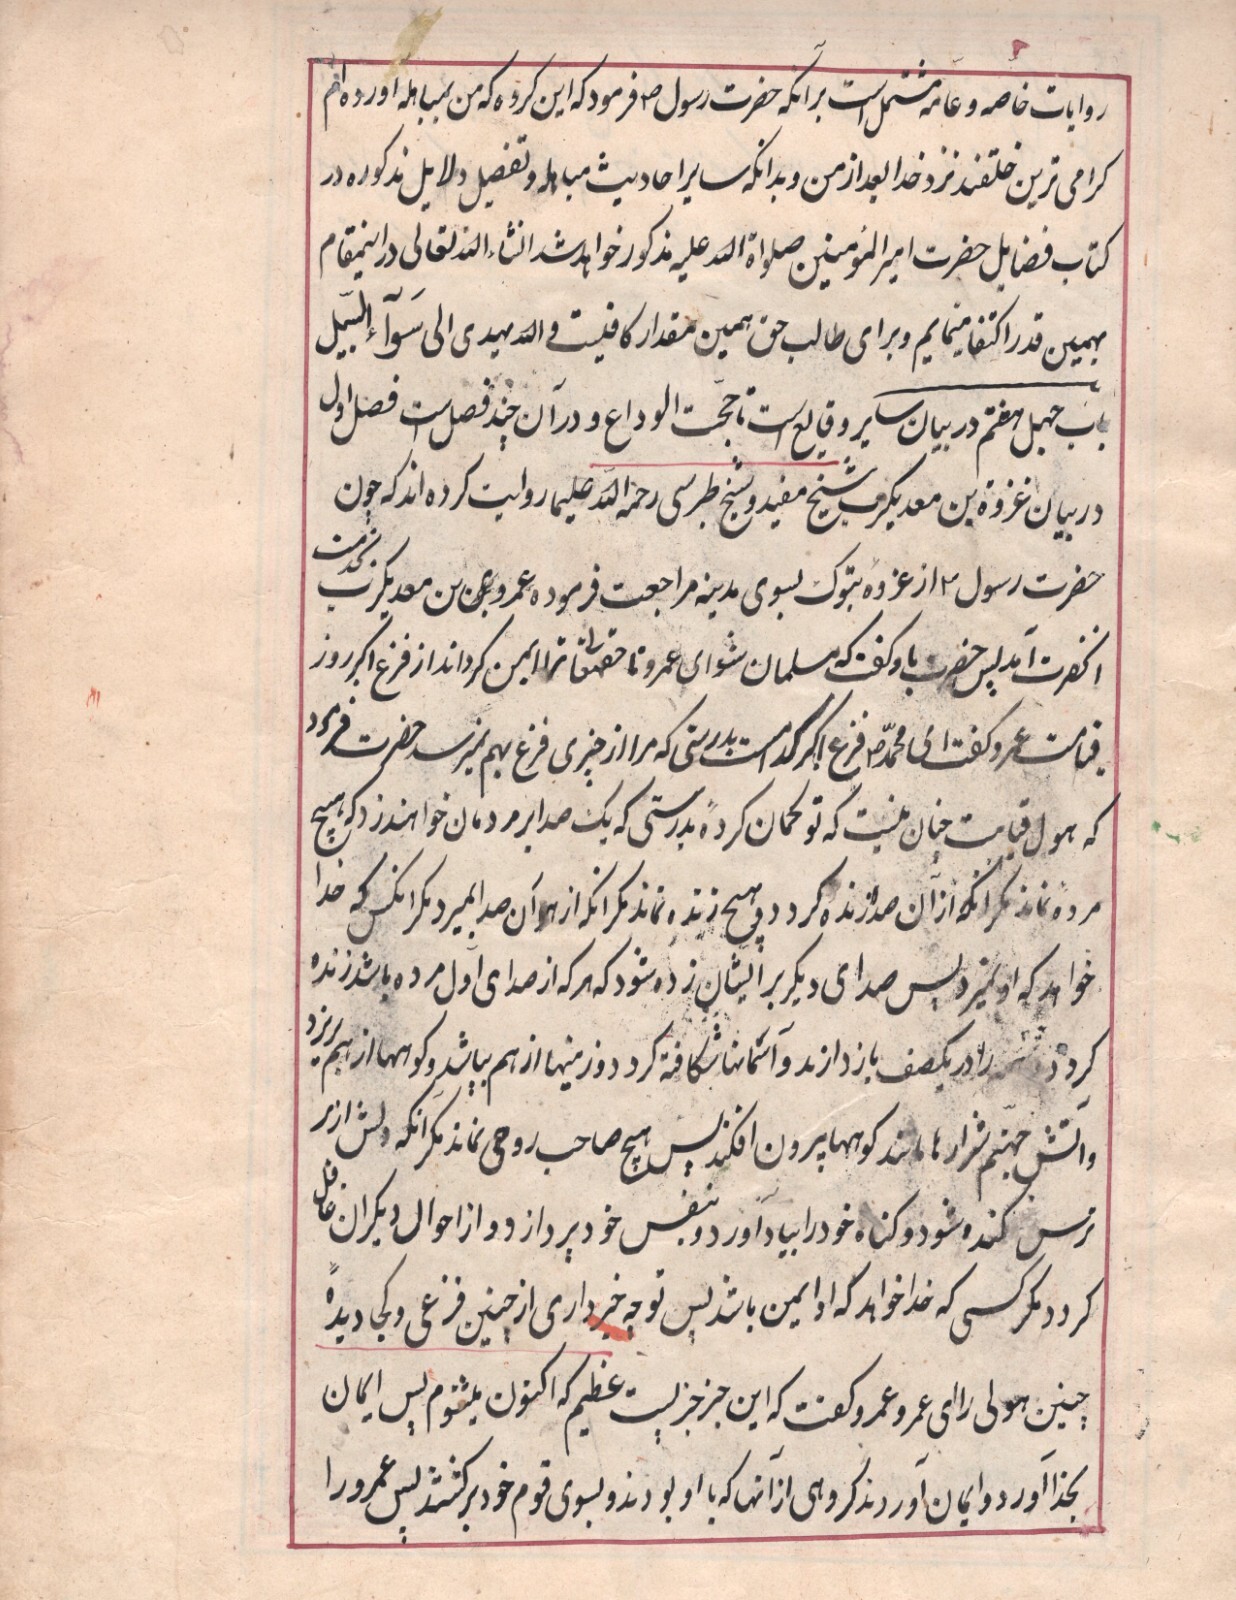 روایات خاصه و عامه مشتمل است برآنکه حضرت رسول ص فرمود که این گروه که من بمباهله آورده‌ام
کرامی ترین خلقند نزد خدا بعد از من و بدانکه سایر احادیث مباهله و تفصیل دلایل مذکوره در
کتاب فضایل حضرت امیر المؤمنین صلواة الله علیه مذکور خواهد شد انشاء الله تعالی در اینمقام
بهمین قدر اکتفا مینمایم و برای طالب حق همین مقدار کافیست و الله یهدی الی سَوآء السبیل
باب چهل هفتم در بیان سایر وقایع است تا حجت الوداع و در آن چند فصل است فصل اول
در بیان غزوة بن معدیکرب شیخ مفید و شیخ طبرسی رحمة الله علیهما روایت کرده اند که چون
حضرت رسول ص از غزوه تبوک بسوی مدینه مراجعت فرموده عمرو بن معدیکرب بخدمت
آنحضرت آمد پس حضرت باو گفت که مسلمان شو ای عمرو تا حقتعالی ترا ایمن گرداند از فزع اکبر روز
قیامت عمرو گفت ای محمد ص فزع اکبر کدام است بدرستی که مرا از چیزی فزع بهم نمیرسد حضرت فرمود
که هول قیامت چنان نیست که تو گمان کردهٔ بدرستی که یک صدا بر مردمان خواهند زد که هیچ
مرده نماند مگر آنکه از آن صدا زنده گردد و هیچ زنده نماند مگر آنکه از آن صدا بمیرد مگر آنکس که خدا
خواهد که او نمیرد پس صدای دیگر بر ایشان زده شود که هر که از صدای اول مرده باشد زنده
گردد را در یکصف باز دارند و آسمانها شکافته گردد و زمینها از هم بپاشد و کوهها از هم بریزد
و آتش جهنم شرارها مانند کوهها بیرون افکند پس هیچ صاحب روحی نماند مگر آنکه دلش از
ترس کنده شود و گناه خود را بیاد آورد و بنفس خود پردازد و از احوال دیگران غافل
گردد مگر کسی که خدا خواهد که او ایمن باشد پس تو چه خبرداری از چنین فزعی و کجا دیدهٔ
چنین هولی را ای عمرو عمرو گفت که این خبر خبریست عظیم که اکنون میشنوم پس ایمان
بخدا آورد و ایمان آوردند گروهی از آنها که با او بودند و بسوی قوم خود برگشتند پس عمرو را